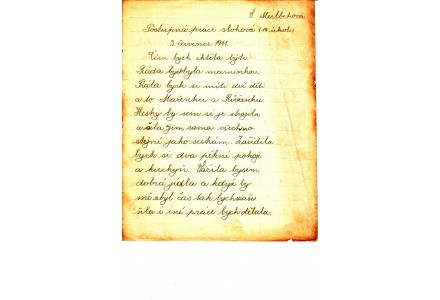 Postupná práce slohová
3. červenec 1911.
Čím bych chtěla býti
Ráda bych byla maminkou
Přála bych si míti dvě děti
a to Mařenku a Růženku
Hezky by sem si je strojila
a šila jim sama všechno
stejné jako seckám. Zařídila
bych si dva pěkné pokoje
a kuchyň. Vařila bysem
dobrá jídla a když by
mě zbyl čas tak bych
šila i iné práce bych dělala.